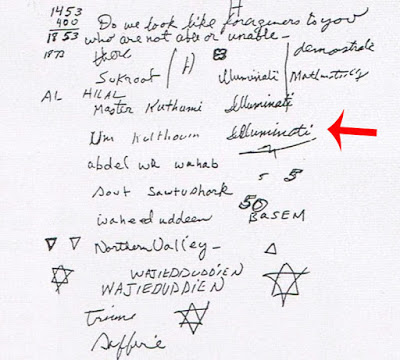 1453
400 Do we look like foragners to you
1853 who are not able or unable -
1873 there H demostrate
Sukroof Illuminati
AL HILAL
Master Kuthumi Illuminati
Um Kulthoum Illuminati
abdel wahab 5 5
Sout Sawtushark
50
waheeduddeen BASEM
Northern Valley -
WAJIEDDUDDIEN
WAJIEDUDDIEN